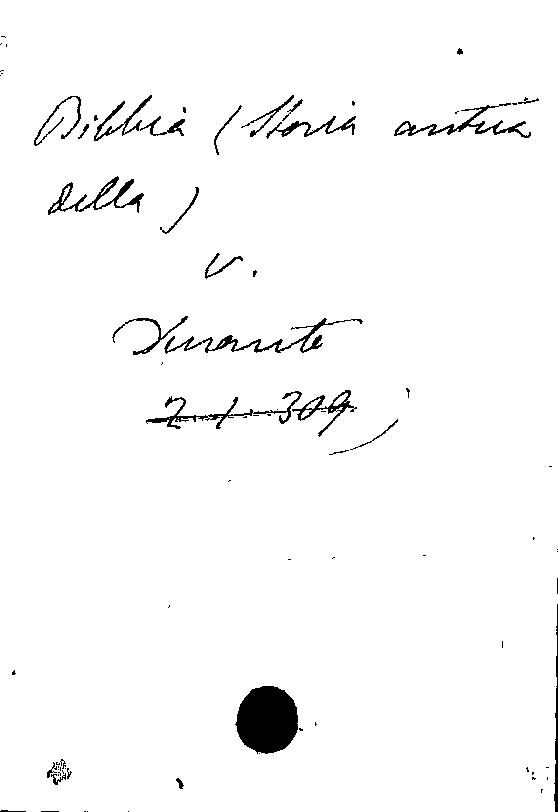 Bibbia (Storia antica
della)
v.
Durante
2. 1. 309